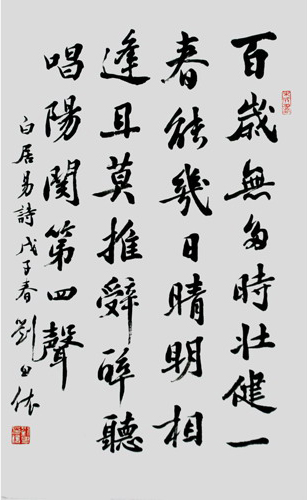 百歲無多時壯健一
春能幾日晴明相
逢且莫推辭醉聽
唱陽関第四聲
白居易詩戊子春劉